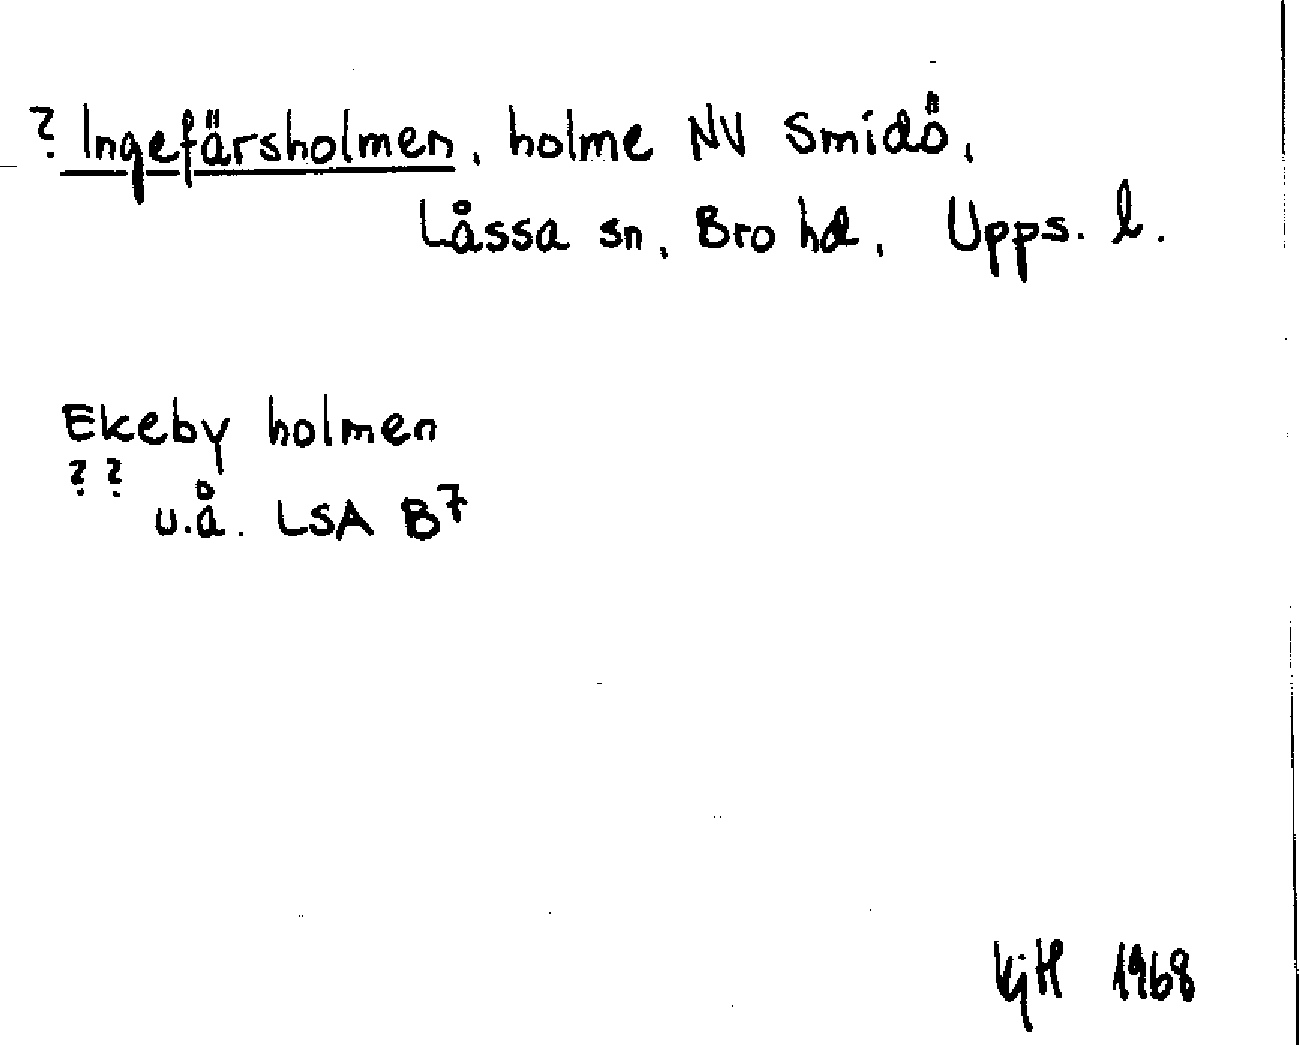 ? Ingefärsholmen, holme NV Smidö,
Låssa sn, Bro hd, Upps. l.
Ekeby holmen
? ?
u.å. LSA B7
KjH 1968